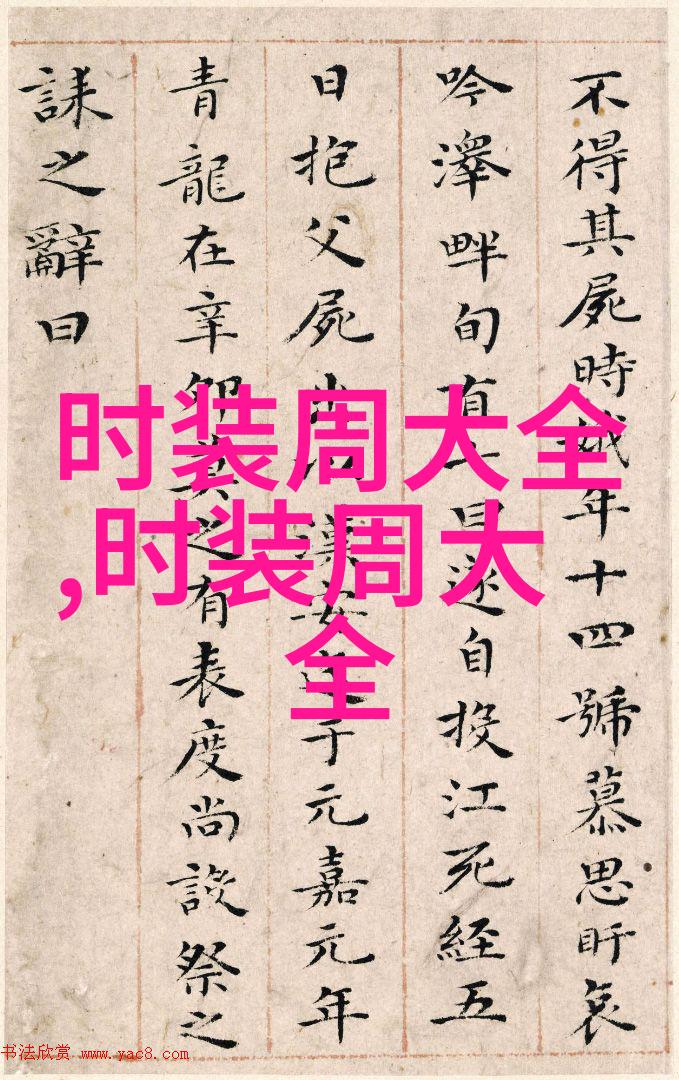 不得其屍時娥年十四號慕思盱哀
吟澤畔旬有七日遂自投江死經五
日抱父屍出以漢安迄于元嘉元年
青龍在辛卯莫之有表度尚設祭之
誄之辭曰
时装周大全
,时装周大
全
书法欣赏 www.yac8.com